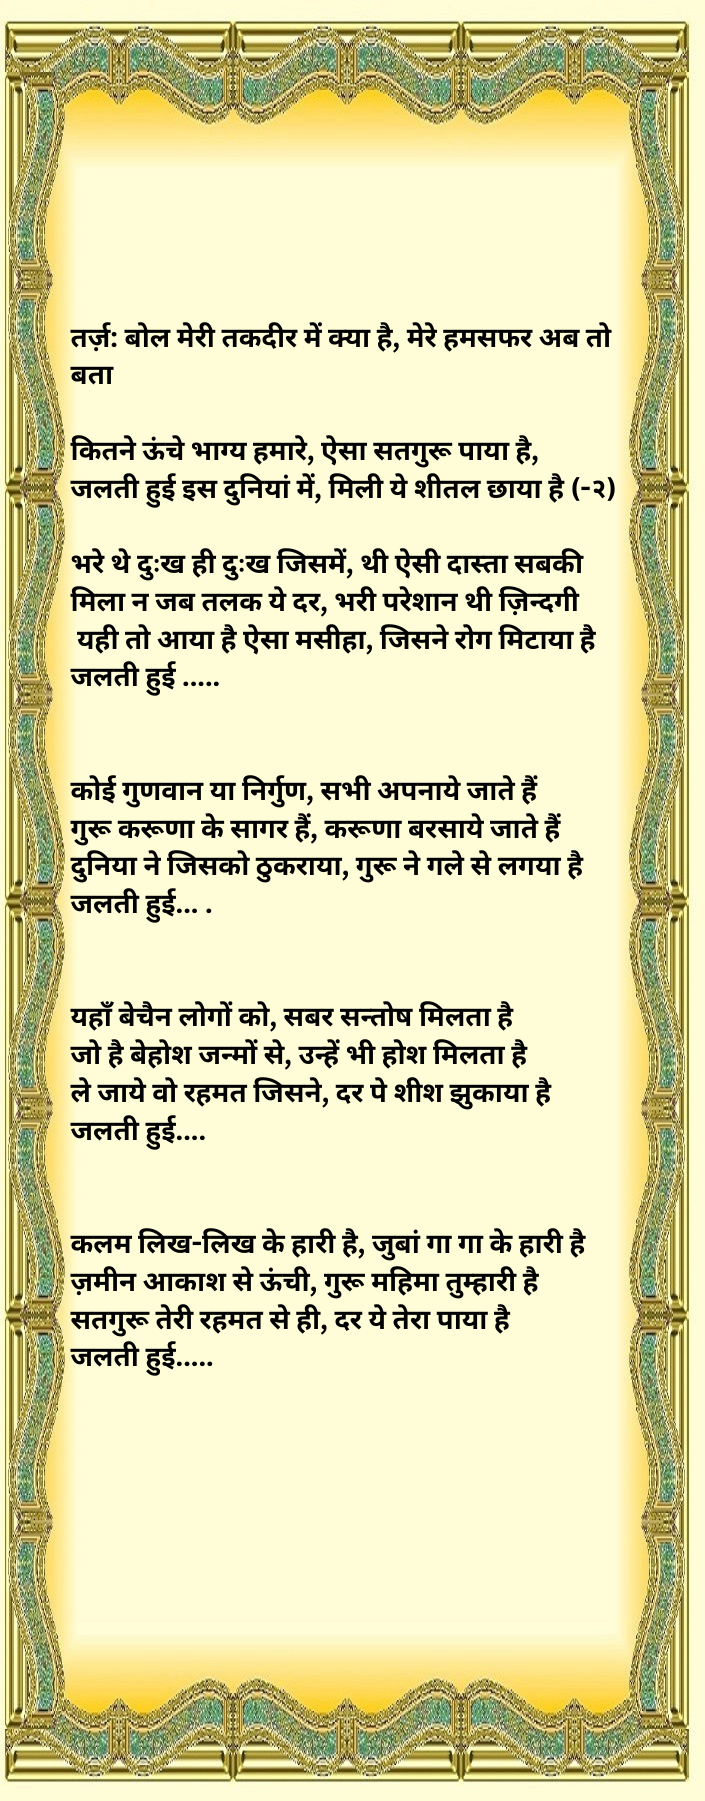 तर्ज़: बोल मेरी तकदीर में क्या है, मेरे हमसफर अब तो
बता
कितने ऊंचे भाग्य हमारे, ऐसा सतगुरू पाया है,
जलती हुई इस दुनियां में, मिली ये शीतल छाया है (-२)
भरे थे दुःख ही दुःख जिसमें, थी ऐसी दास्ता सबकी
मिला न जब तलक ये दर, भरी परेशान थी ज़िन्दगी
यही तो आया है ऐसा मसीहा, जिसने रोग मिटाया है
जलती हुई .....
कोई गुणवान या निर्गुण, सभी अपनाये जाते हैं
गुरू करूणा के सागर हैं, करूणा बरसाये जाते हैं
दुनिया ने जिसको ठुकराया, गुरू ने गले से लगया है
जलती हुई... .
यहाँ बेचैन लोगों को, सबर सन्तोष मिलता है
जो है बेहोश जन्मों से, उन्हें भी होश मिलता है
ले जाये वो रहमत जिसने, दर पे शीश झुकाया है
जलती हुई....
कलम लिख-लिख के हारी है, जुबां गा गा के हारी है
ज़मीन आकाश से ऊंची, गुरू महिमा तुम्हारी है
सतगुरू तेरी रहमत से ही, दर ये तेरा पाया है
जलती हुई.....